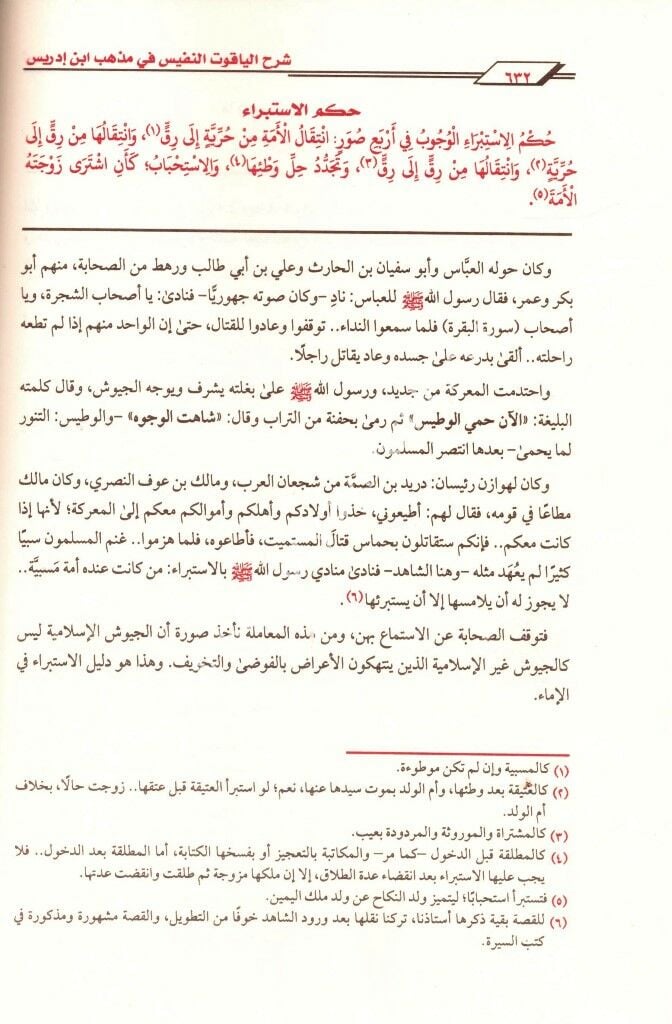 شرح الياقوت النفيس في مذهب ابن إدريس
٦٣٢
حكم الاستبراء
حُكْمُ الِاسْتِبْرَاءِ الْوُجُوبُ فِي أَرْبَعِ صُوَرٍ: انْتِقَالُ الْأَمَةِ مِنْ حُرِّيَّةٍ إِلَى رِقٍّ(١)، وَانْتِقَالُهَا مِنْ رِقٍّ إِلَى
حُرِّيَّةٍ(٢)، وَانْتِقَالُهَا مِنْ رِقٍّ إِلَى رِقٍّ(٣)، وَتَجَدُّدُ حِلِّ وَطْئِهَا(٤)، وَالِاسْتِحْبَابُ؛ كَأَنِ اشْتَرَى زَوْجَتَهُ
الْأَمَةَ(٥).
وكان حوله العبَّاس وأبو سفيان بن الحارث وعلي بن أبي طالب ورهط من الصحابة، منهم أبو
بكر وعمر، فقال رسول الله ﷺ للعباس: نادِ -وكان صوته جهوريًّا- فنادىٰ: يا أصحاب الشجرة، ويا
أصحاب (سورة البقرة) فلما سمعوا النداء.. توقفوا وعادوا للقتال، حتىٰ إن الواحد منهم إذا لم تطعه
راحلته.. ألقىٰ بدرعه علىٰ جسده وعاد يقاتل راجلًا.
واحتدمت المعركة من جديد، ورسول الله ﷺ علىٰ بغلته يشرف ويوجه الجيوش، وقال كلمته
البليغة: «الآن حمي الوطيس» ثم رمىٰ بحفنة من التراب وقال: «شاهت الوجوه» -والوطيس: التنور
لما يحمىٰ- بعدها انتصر المسلمون.
وكان لهوازن رئيسان: دريد بن الصمَّة من شجعان العرب، ومالك بن عوف النصري، وكان مالك
مطاعًا في قومه، فقال لهم: أطيعوني، خذوا أولادكم وأهلكم وأموالكم معكم إلىٰ المعركة؛ لأنها إذا
كانت معكم.. فإنكم ستقاتلون بحماس قتالَ المستميت، فأطاعوه، فلما هزموا.. غنم المسلمون سبيًا
كثيرًا لم يُعْهَد مثله -وهنا الشاهد- فنادىٰ منادي رسول الله ﷺ بالاستبراء: من كانت عنده أمة مَسبيَّة..
لا يجوز له أن يلامسها إلا أن يستبرئها(٦).
فتوقف الصحابة عن الاستماع بهن، ومن هذه المعاملة نأخذ صورة أن الجيوش الإسلامية ليس
كالجيوش غير الإسلامية الذين ينتهكون الأعراض بالفوضىٰ والتخريف. وهذا هو دليل الاستبراء في
الإماء.
(١) كالمسبية وإن لم تكن موطوءة.
(٢) كالعتيقة بعد وطئها، وأم الولد بموت سيدها عنها، نعم؛ لو استبرأ العتيقة قبل عتقها.. زوجت حالًا، بخلاف
أم الولد.
(٣) كالمشتراة والموروثة والمردودة بعيب.
(٤) كالمطلقة قبل الدخول -كما مر- والمكاتبة بالتعجيز أو بفسخها الكتابة، أما المطلقة بعد الدخول.. فلا
يجب عليها الاستبراء بعد انقضاء عدة الطلاق، إلا إن ملكها مزوجة ثم طلقت وانقضت عدتها.
(٥) فتستبرأ استحبابًا؛ ليتميز ولد النكاح عن ولد ملك اليمين.
(٦) للقصة بقية ذكرها أستاذنا، تركنا نقلها بعد ورود الشاهد خوفًا من التطويل، والقصة مشهورة ومذكورة في
كتب السيرة.